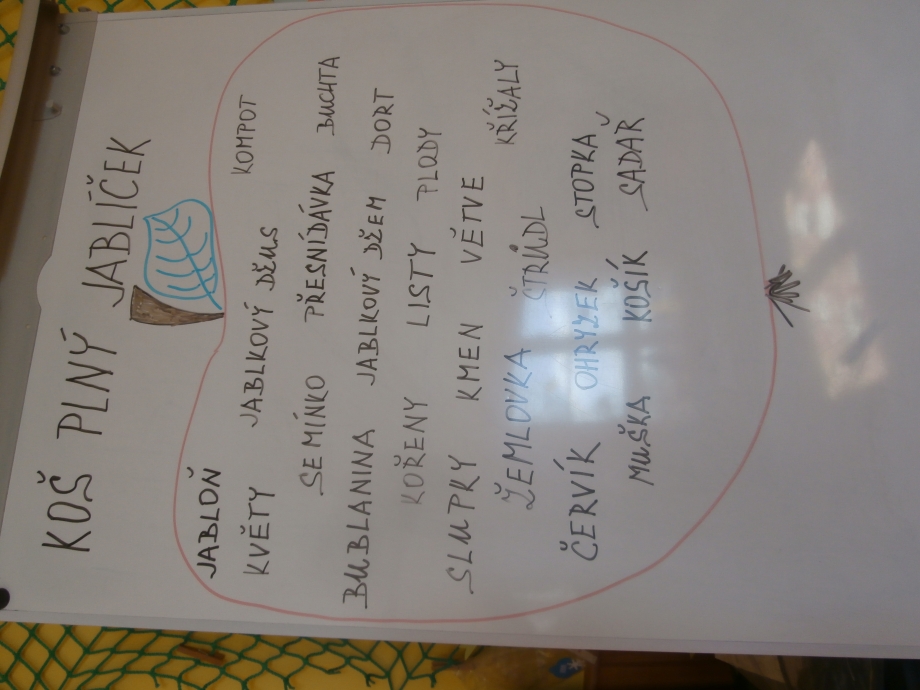 KOŠ PLNÝ JABLÍČEK
JABLOŇ
KVĚTY JABLKOVÝ DŽUS KOMPOT
SEMÍNKO PŘESNÍDÁVKA BUCHTA
BUBLANINA JABLKOVÝ DŽEM DORT
KOŘENY LISTY PLODY
SLUPKY KMEN VĚTVE KŘÍŽALY
ŽEMLOVKA ŠTRŮDL
ČERVÍK OHRYZEK STOPKA
MUŠKA KOŠÍK SADAŘ